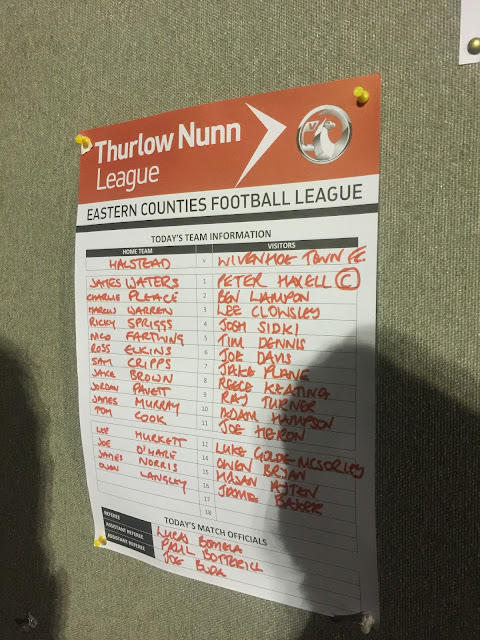 Thurlow Nunn
League
EASTERN COUNTIES FOOTBALL LEAGUE
TODAY'S TEAM INFORMATION
HOME TEAM VISITORS
HALSTEAD v WIVENHOE TOWN FC
JAMES WATERS 1 PETER MAXELL (C)
CHARLIE PLEACE 2 BEN LAMPON
MARCUS WARREN 3 LEE CLOWSLEY
RICKY SPRIGGS 4 JOSH SIDKI
NICO FARTHING 5 TIM DENNIS
ROSS ELKINS 6 JOE DAVIS
SAM CRIPPS 7 JAKE PLANE
JAKE BROWN 8 REECE KEATING
JORDAN PAVETT 9 RAY TURNER
JAMES MURRAY 10 ADAM HAMPSON
TOM COOK 11 JOE HERON
LEE HURKETT 12 LUKE GOLDE-MCSORLEY
JOE O'HARE 14 OWEN BRYAN
JAMES NORRIS 15 HASAN AYTEN
OWEN LANGLEY 16 JAMIE BAKER
17
18
TODAY'S MATCH OFFICIALS
REFEREE LUCAS
ASSISTANT REFEREE PAUL BOTTERILL
ASSISTANT REFEREE JOE